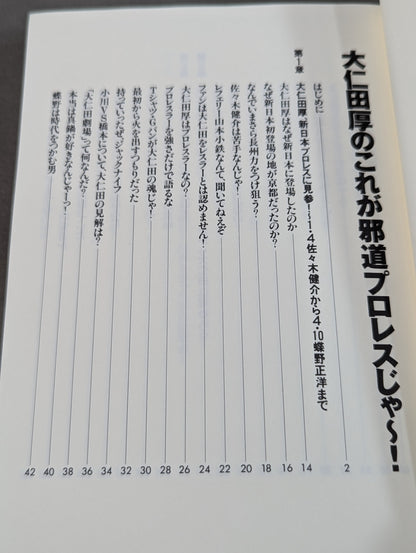 大仁田厚のこれが邪道プロレスじゃ〜!
はじめに 2
第1章 大仁田厚、新日本プロレスに見参!〜1・4佐々木健介から4・10蝶野正洋まで
大仁田厚はなぜ新日本に登場したのか 14
なぜ新日本初登場の地が京都だったのか? 16
なんでいまさら長州力をつけ狙う? 18
佐々木健介は苦手なんじゃ! 20
レフェリー山本小鉄なんて聞いてねえぞ 22
ファンは大仁田をレスラーとは認めません! 24
大仁田厚はプロレスラーなの? 26
プロレスラーを強さだけで語るな 28
Tシャツ・Gパンが大仁田の魂じゃ! 30
最初から火を出すつもりだった 32
持っていったぜ、ジャックナイフ 34
小川VS橋本について、大仁田の見解は? 36
「大仁田劇場」って何なんだ? 38
本当は真鍋が好きなんじゃーっ! 40
蝶野は時代をつかむ男 42